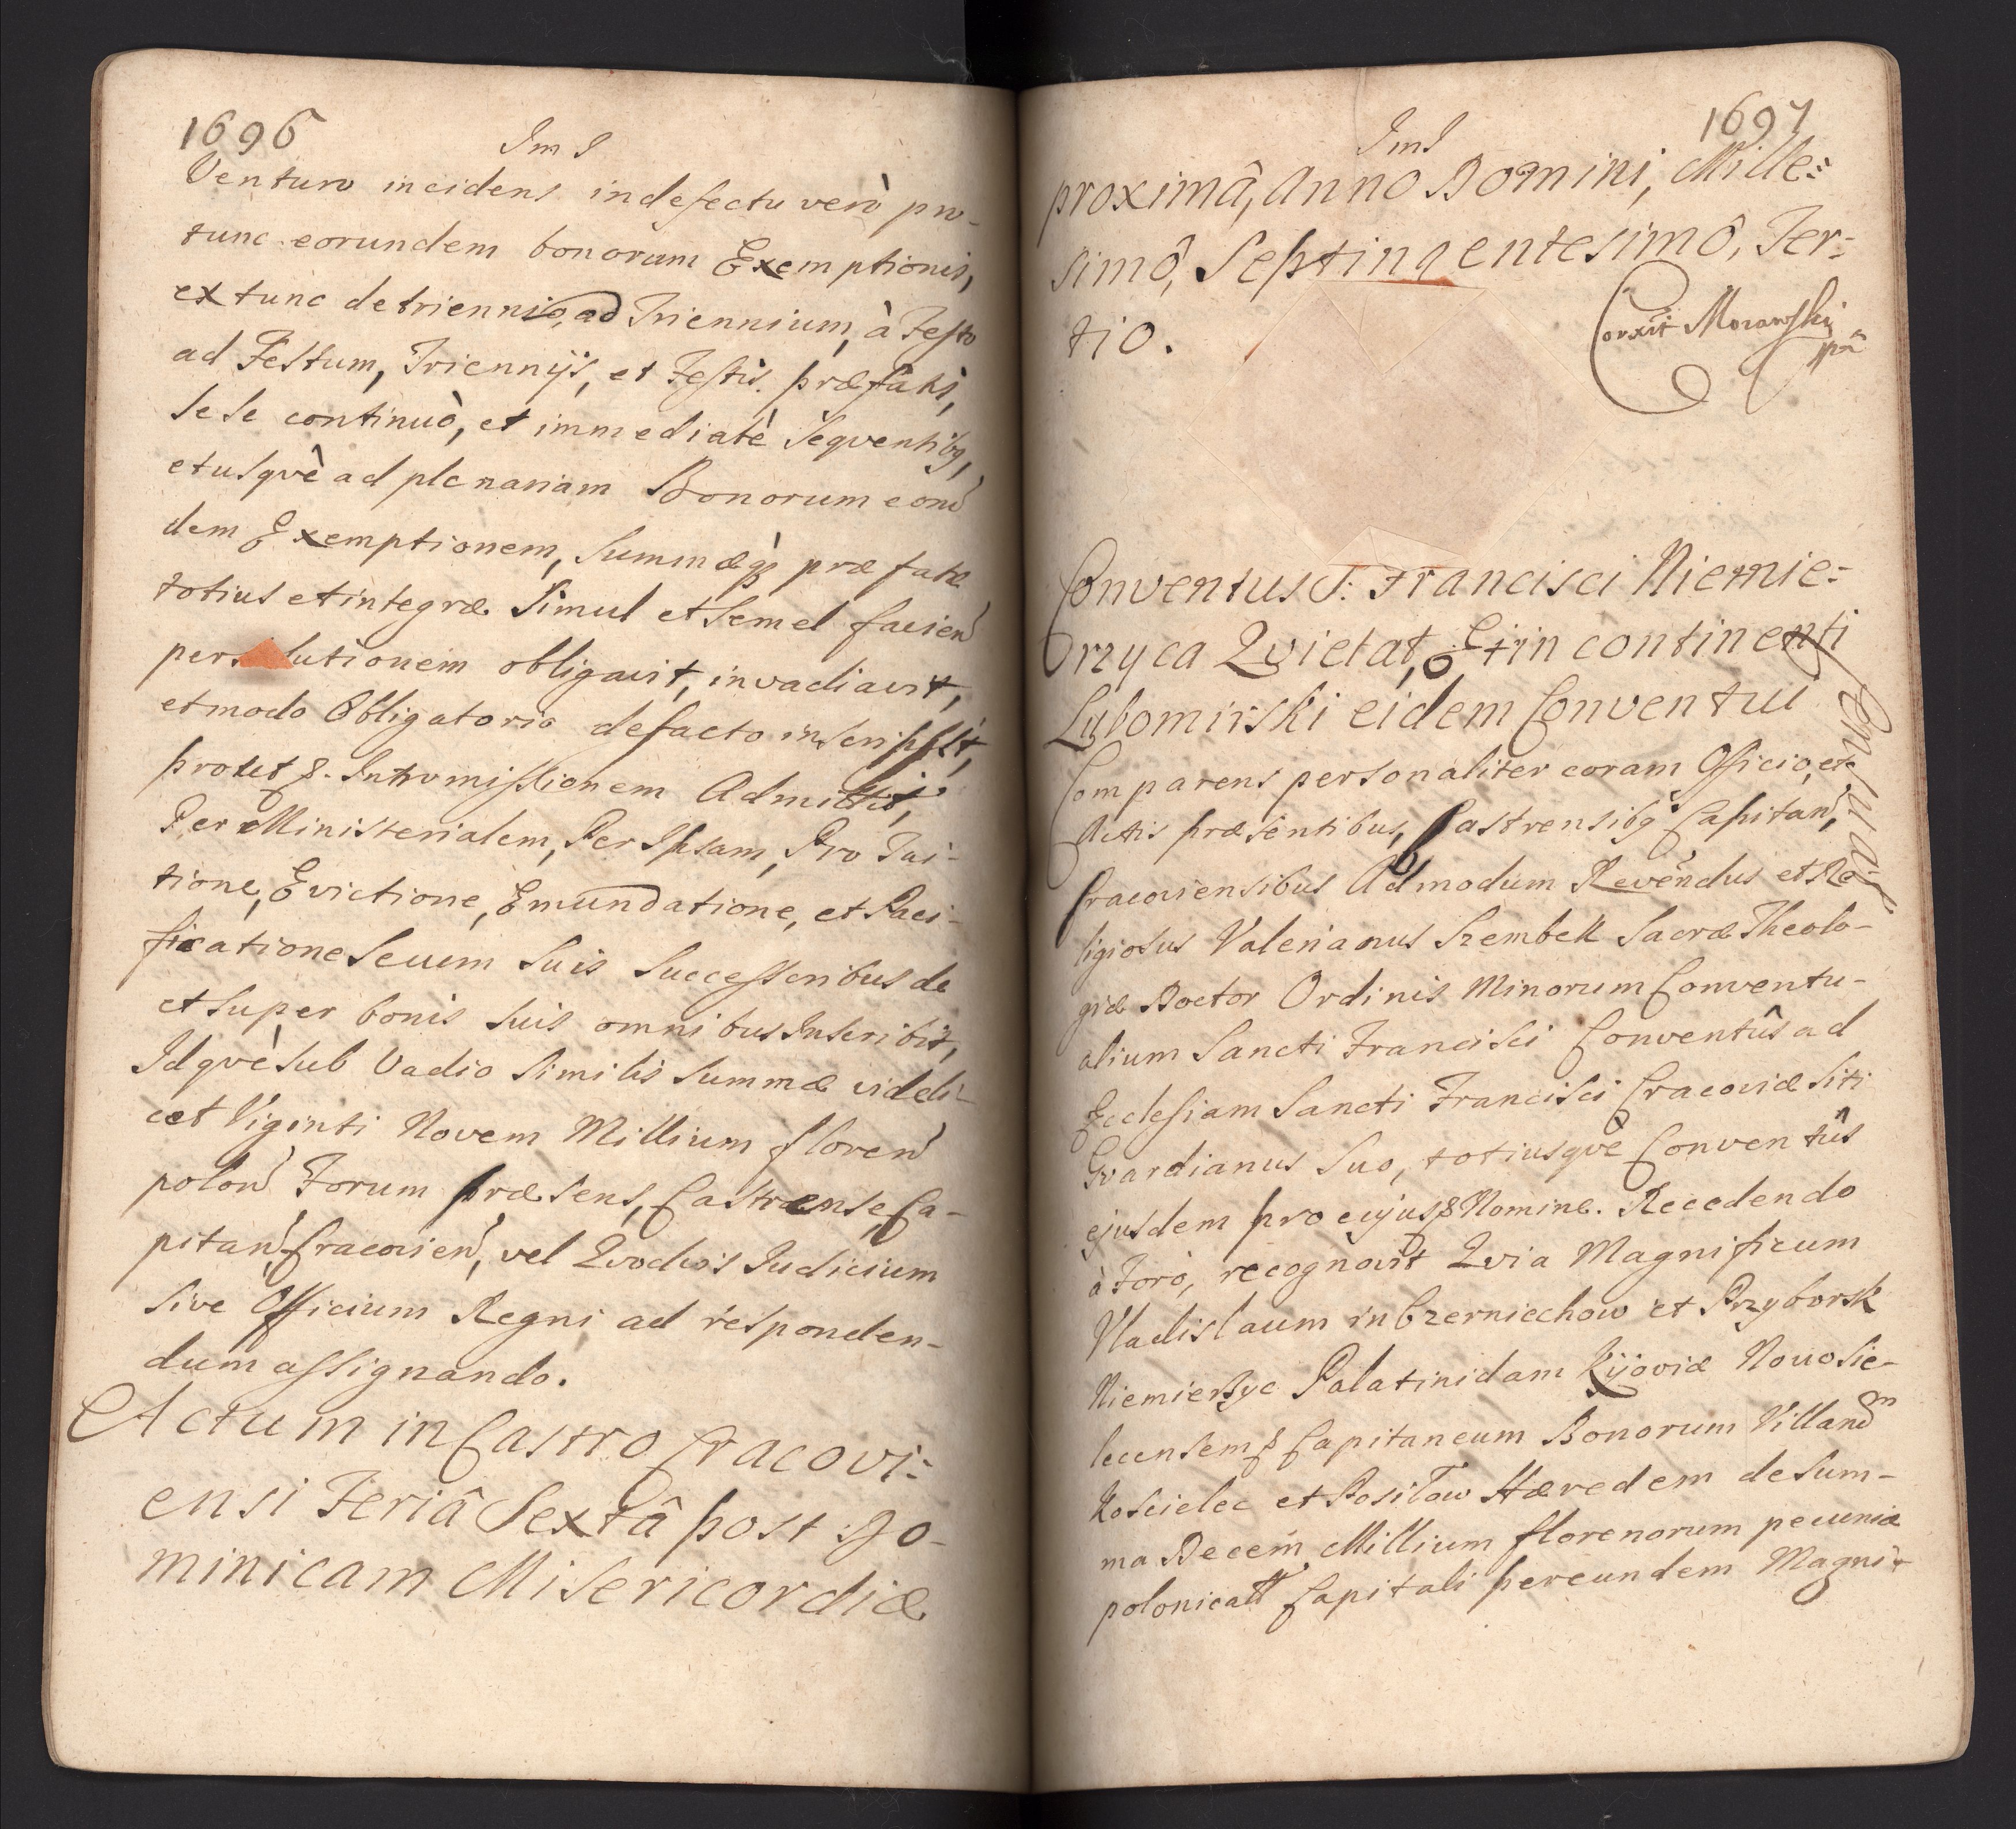 1696
Im I
Venturo incidens in defectu verò pro-
tunc eorundem bonorum Exemptionis,
ex tunc de triennio, ad Triennium, à Festo
ad Festum, Triennijs, et Festis præfatis,
sese continuò, et immediatè sequentibq,
et usquè ad plenariam Bonorum eorun̄
dem Exemptionem, summæq; præfatæ
totius et integræ simul et semel facien̄
persolutionem obligavit, invadiavit,
et modo Obligatorio de facto inscripsit,
prout p. Intromissionem Admittit,
Per Ministerialem, Per Ipsam, Pro Tui-
tione, Evictione, Emundatione, et Paci-
ficatione Se cum Suis Successoribus de
et super bonis suis omnibus Inscribit,
Idquè sub Vadio similis summæ videli-
cet Viginti Novem Millium floren̄
polon̄ Forum præsens, Castrense, Ca-
pitan̄, Cracovien̄, vel Quodvis Iudicium
sive Officium Regni ad responden-
dum assignando.
Actum in Castro Cracovi:
ensi Feriâ Sextâ post Do-
minicam Misericordiæ
1697
Im I
proximâ, Anno Domini, Mille:
simô, Septingentesimô, Ter:
tio.
Corxit Morawski
mp
Conventus S: Francisci Niemie:
rzyca Quietat, Et in continenti
Lubomirski eidem Conventui
Comparens personaliter coram Officio, et
Actis præsentibus, Castrensibq Capitan̄,
Cracoviensibus Admodum Revendus et Re-
ligiosus Valerianus Szembek Sacræ Theolo-
giæ Doctor Ordinis Minorum Conventu-
alium Sancti Francisci Conventûs ad
Ecclesiam Sancti Francisci Cracoviæ Siti
Gvardianus Suo, totiusquè Conventûs
ejusdem pro cujus Nomine. Recedendo
à Forô, recognovit Quia Magnificum
Vladislaum in Czerniechow et Przyborsk
Niemierzyc Palatinidam Kijoviæ Nowosie-
lecensem Capitaneum Bonorum Villan̄m
Koscielec et Posiłow Hæredem de Sum-
ma Decem Millium florenorum pecuniæ
polonicali Capitali per eundem Magni-